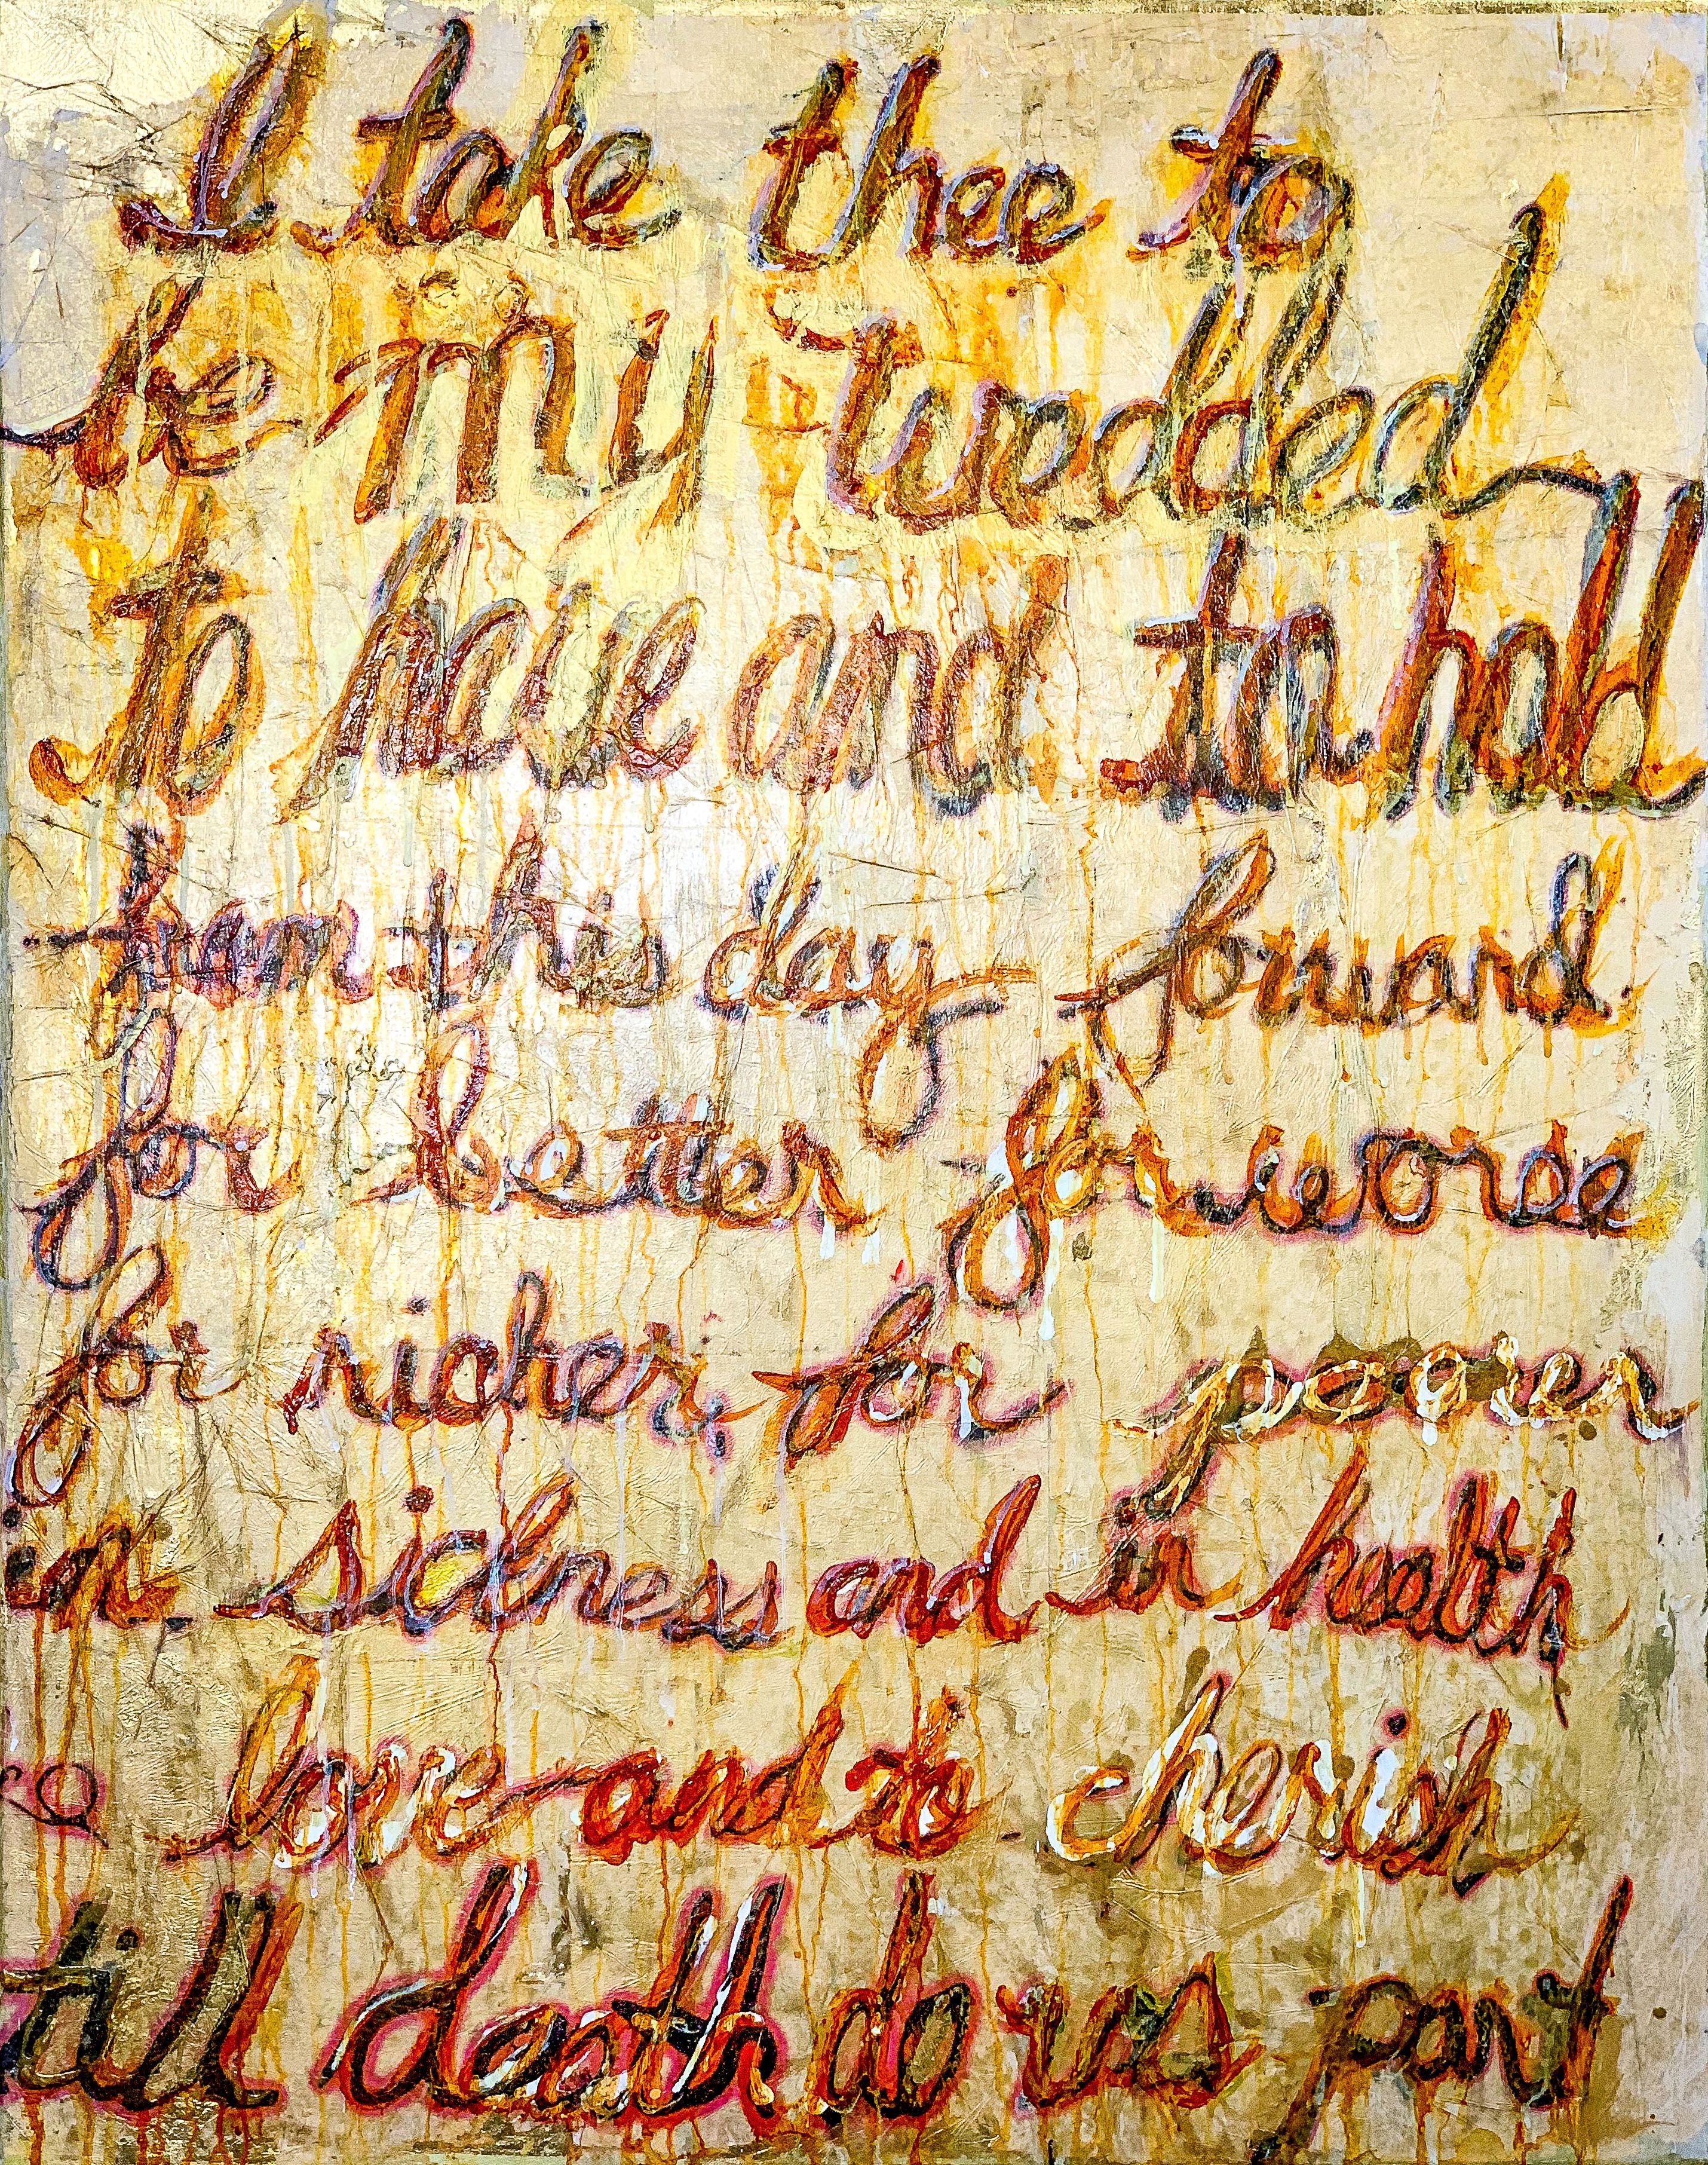 I take thee to
be my wedded
to have and to hold
from this day forward
for better for worse
for richer, for poorer
in sickness and in health
to love and to cherish
till death do us part